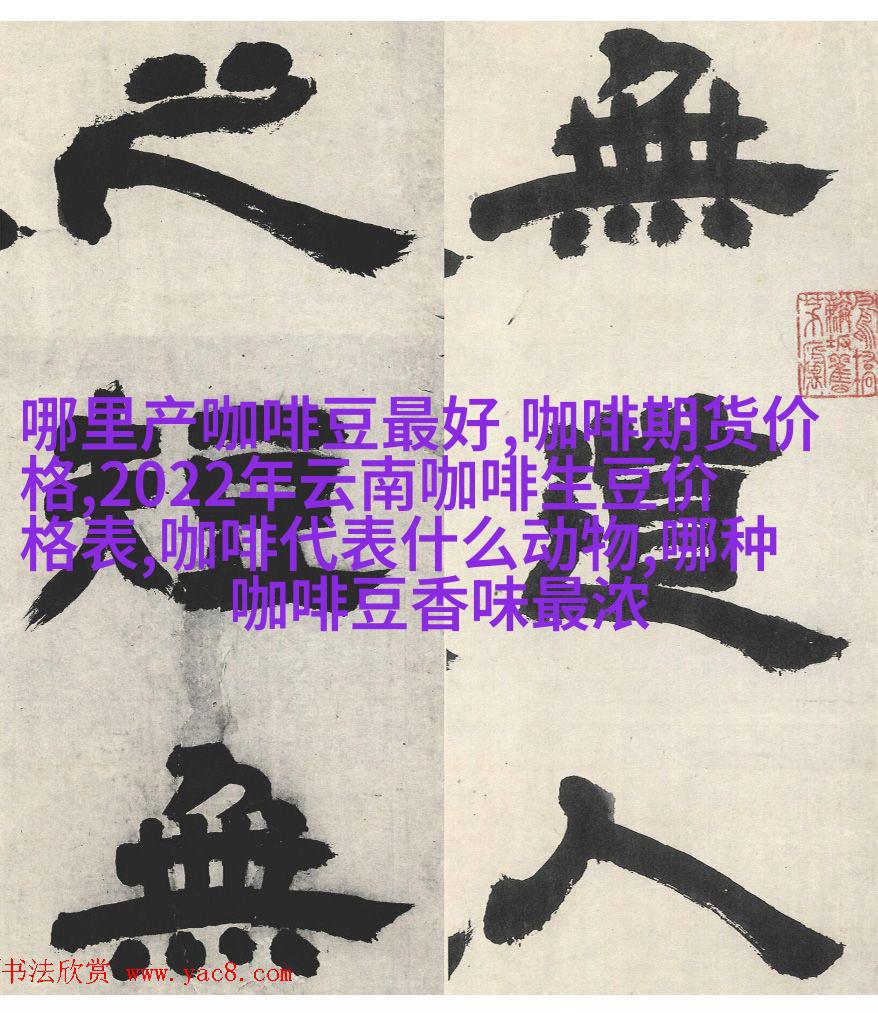 無道人
之短無
哪里产咖啡豆最好,咖啡期货价
格,2022年云南咖啡生豆价
格表,咖啡代表什么动物,哪种
咖啡豆香味最浓
书法欣赏 www.yac8.com